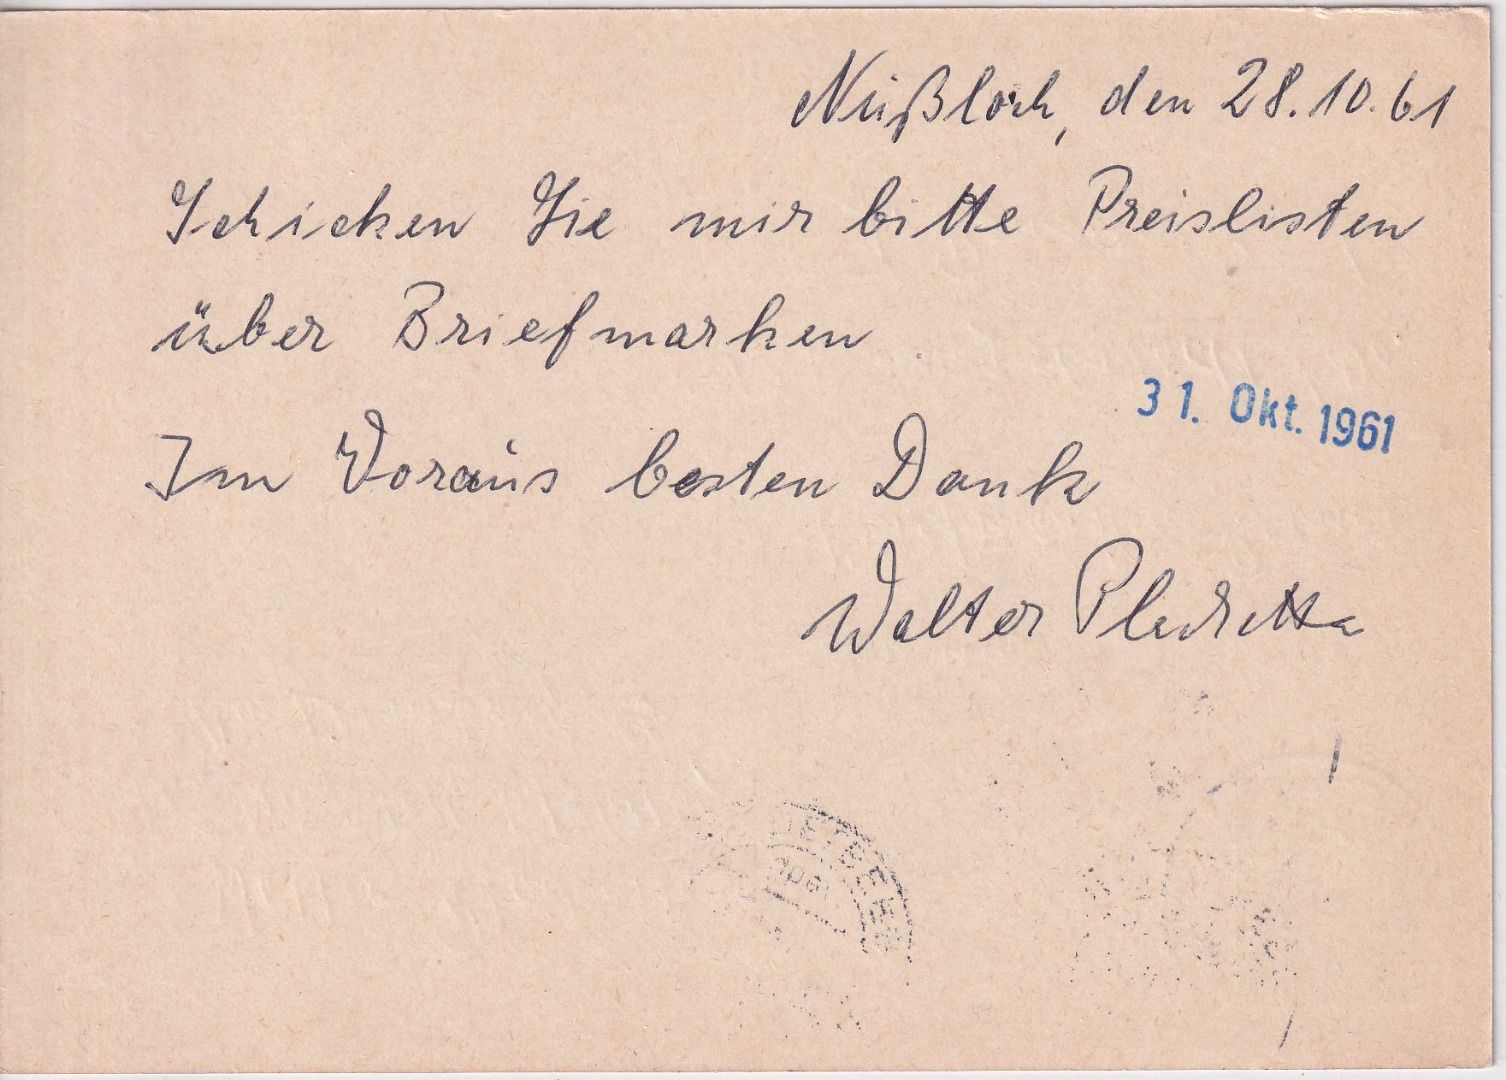 Nußloch, den 28.10.61
Schicken Sie mir bitte Preislisten
über Briefmarken
31. Okt. 1961
Im Voraus besten Dank
Walter